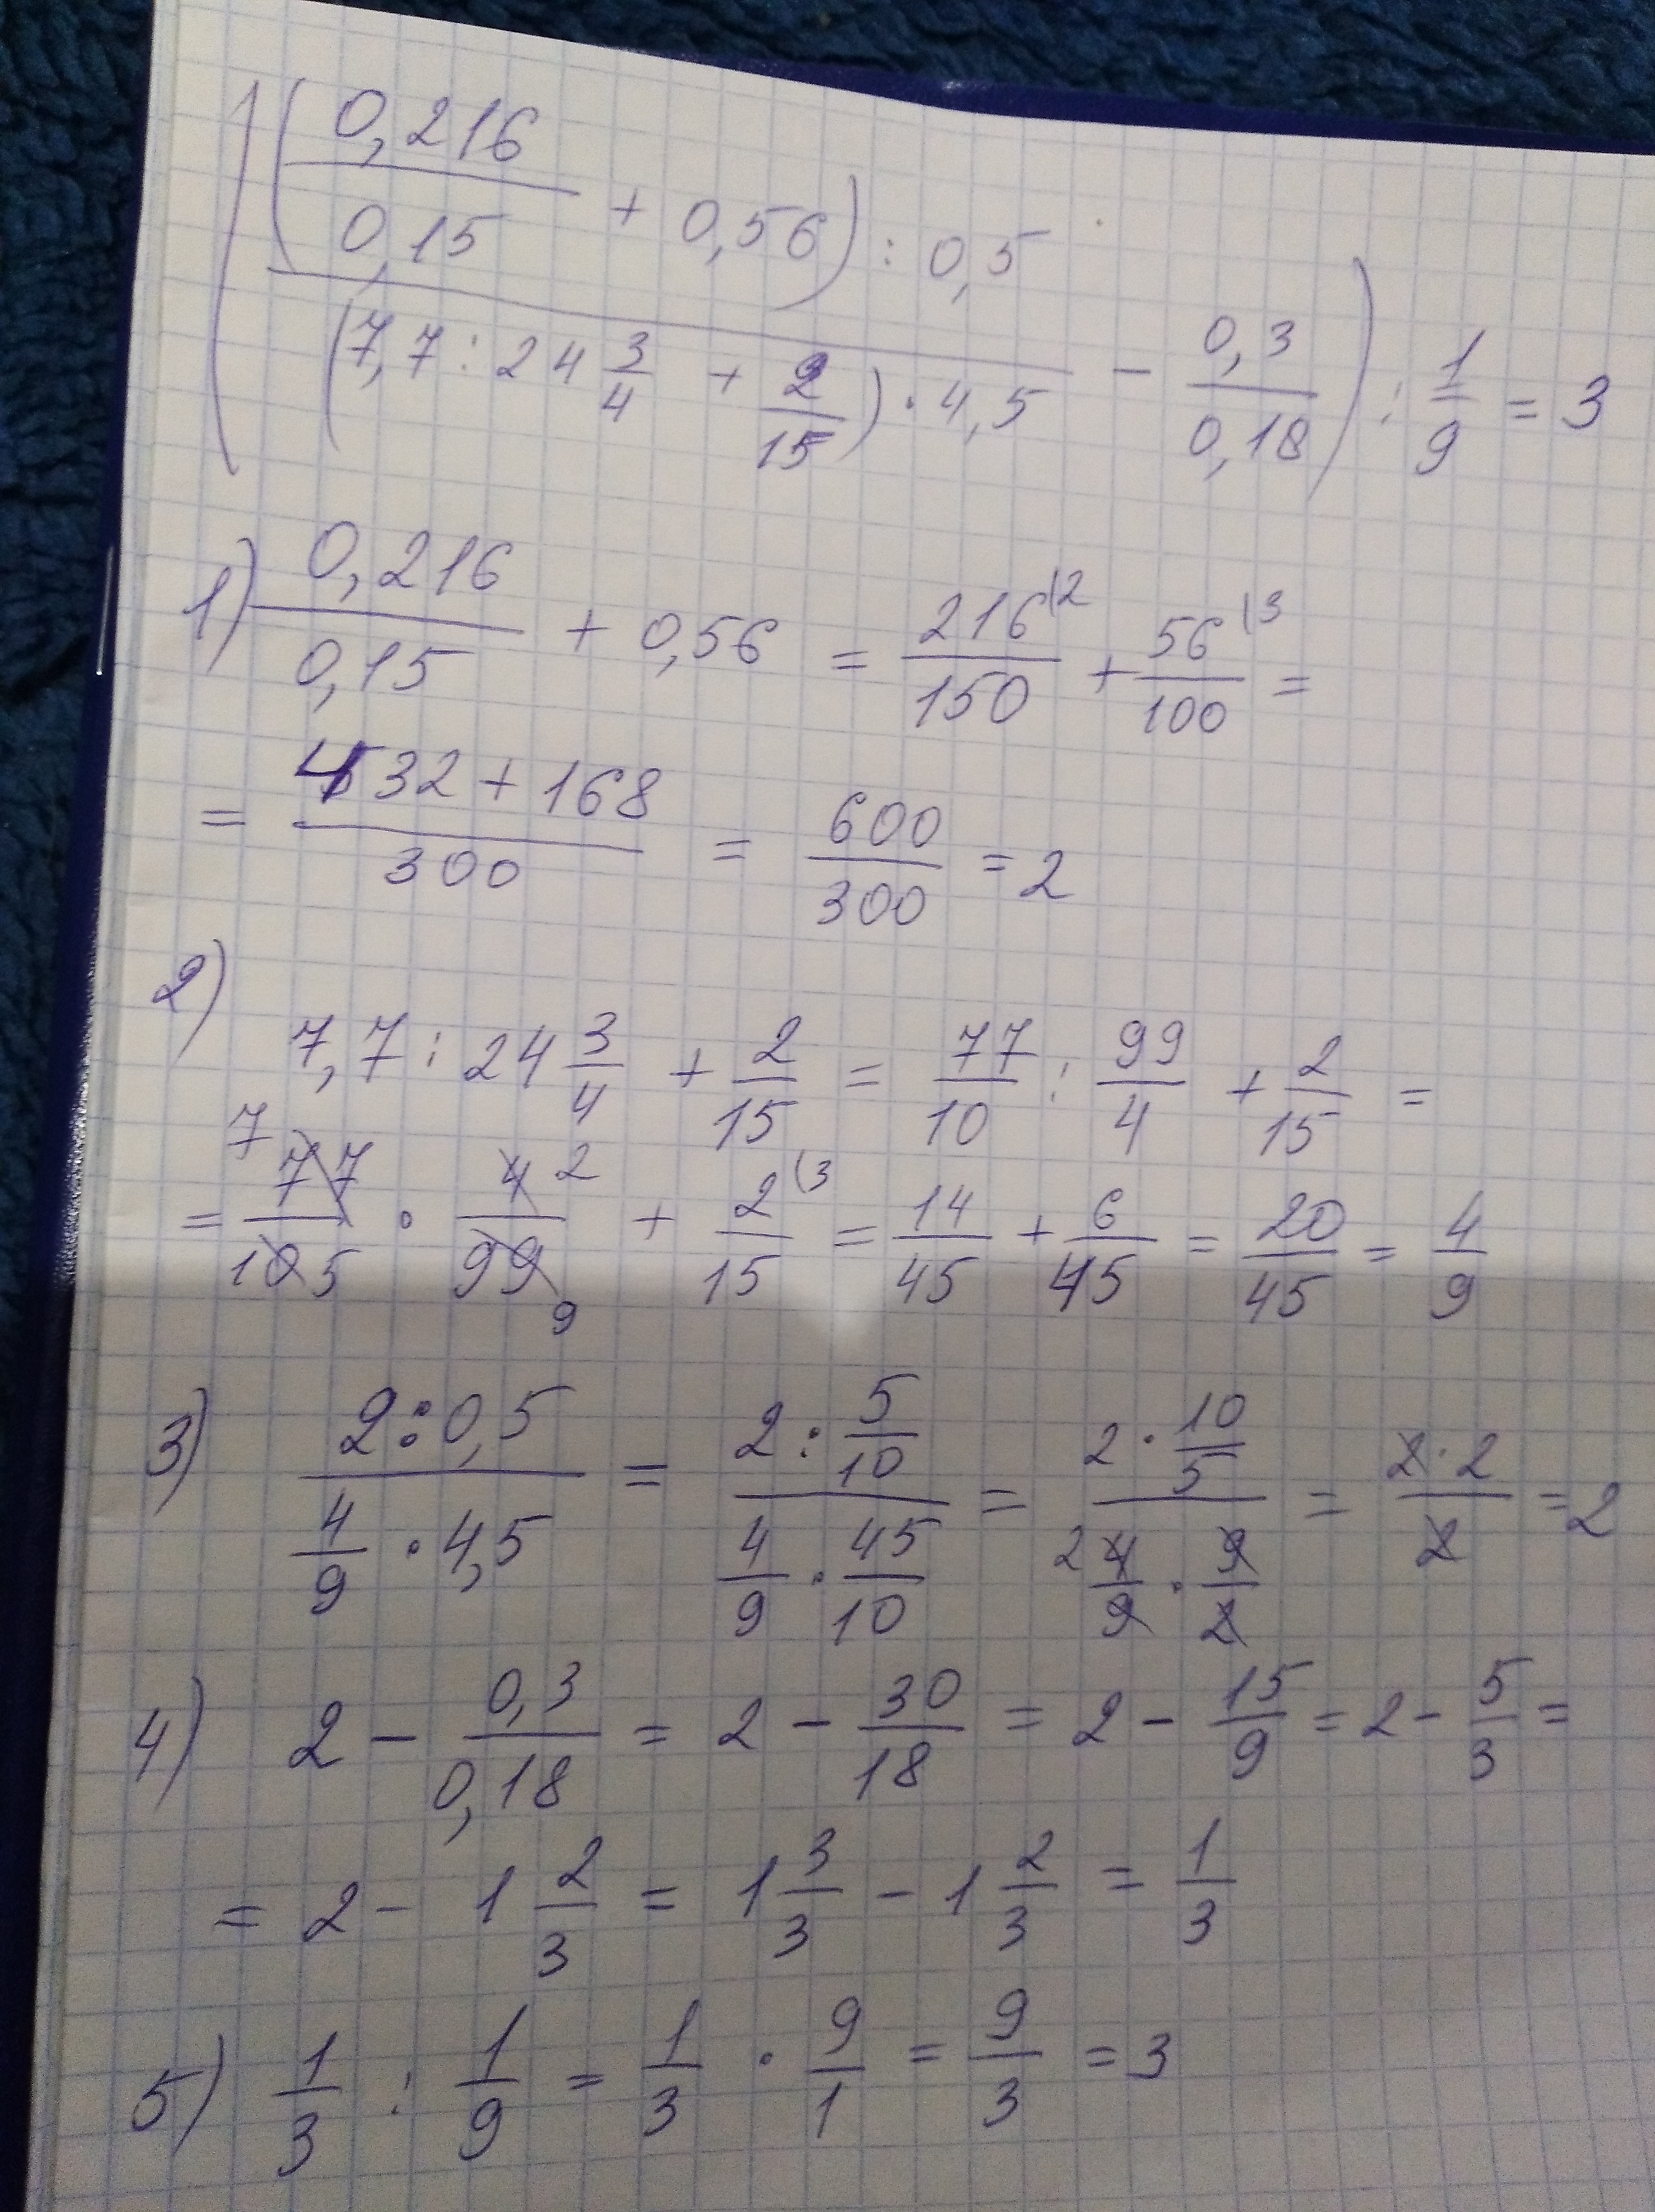 ((0,216/0,15 + 0,56) : 0,5 / (7,7 : 24 3/4 + 2/15) · 4,5 − 0,3/0,18) : 1/9 = 3
1) 0,216/0,15 + 0,56 = 216/150 (2 + 56/100 (3 =
= 432 + 168/300 = 600/300 = 2
2)
7,7 : 24 3/4 + 2/15 = 77/10 : 99/4 + 2/15 =
= 7 77/10 5 · 4 2/99 9 + 2/15 (3 = 14/45 + 6/45 = 20/45 = 4/9
3) 2 : 0,5 / 4/9 · 4,5 = 2 : 5/10 / 4/9 · 45/10 = 2 · 10/5 / 2 4/9 · 9/2 = 2 · 2/2 = 2
4) 2 − 0,3/0,18 = 2 − 30/18 = 2 − 15/9 = 2 − 5/3 =
= 2 − 1 2/3 = 1 3/3 − 1 2/3 = 1/3
5) 1/3 : 1/9 = 1/3 · 9/1 = 9/3 = 3